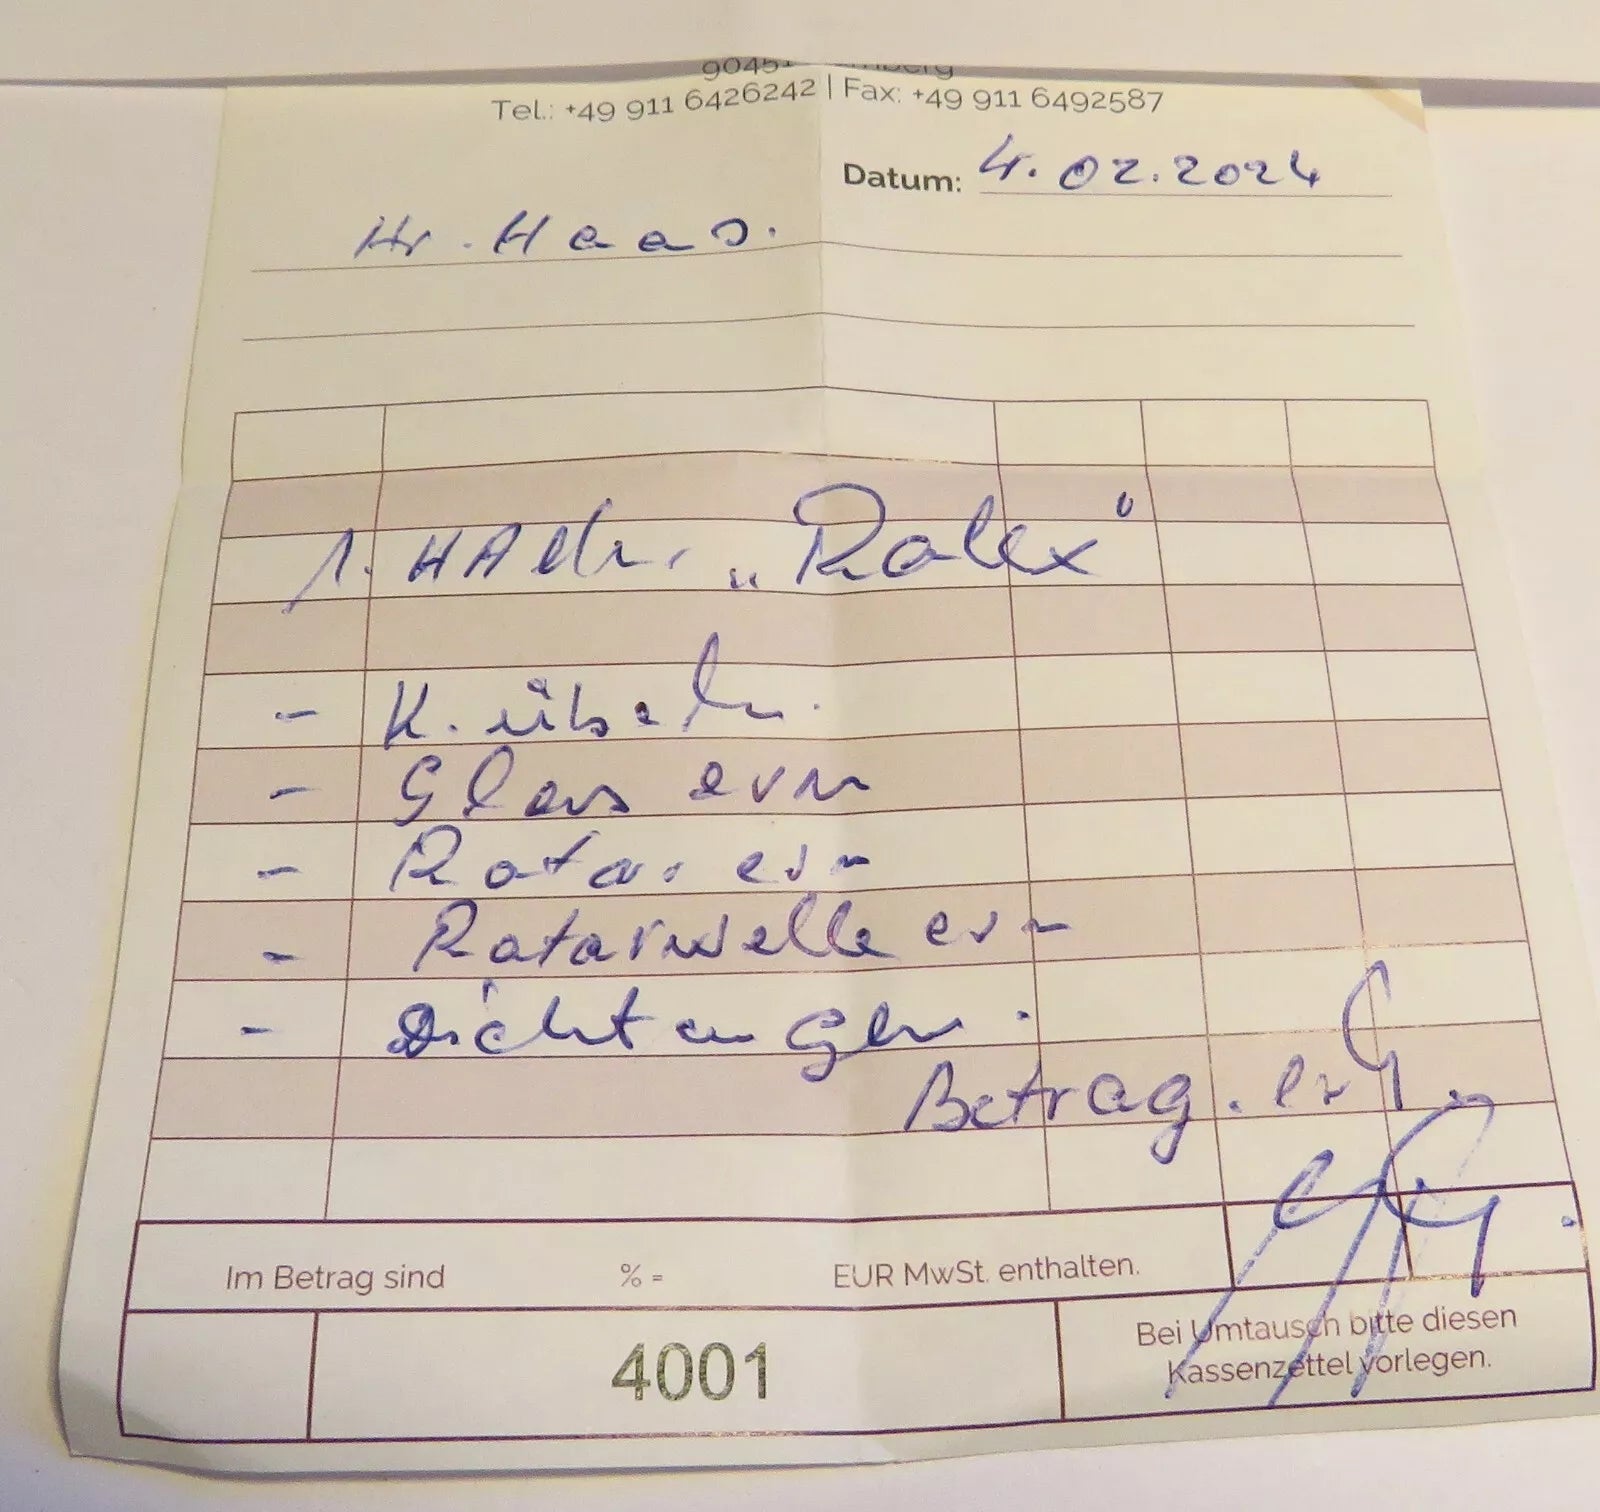 Tel.: +49 911 6426242 | Fax: +49 911 6492587
Datum: 4.02.2024
Hr. Haas.
1. HAU. „Rolex"
- K. überh.
- Glas ern
- Rotor ern
- Rotorwelle ern
- Dichtungen.
Betrag. erh.
Im Betrag sind % = EUR MwSt. enthalten.
4001
Bei Umtausch bitte diesen
Kassenzettel vorlegen.